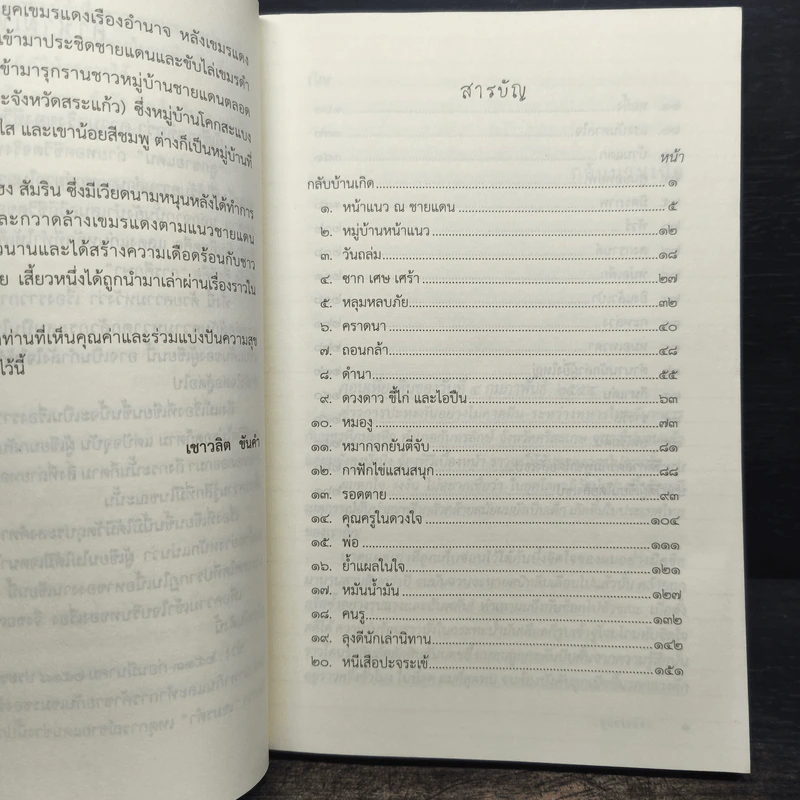 ยุคเขมรแดงเรืองอำนาจ หลังเขมรแดง
เข้ามาประชิดชายแดนและขับไล่เขมรดำ
ข้ามารุกรานชาวหมู่บ้านชายแดนตลอด
ะจังหวัดสระแก้ว) ซึ่งหมู่บ้านโคกสะแบง
ใส และเขาน้อยสีชมพู ต่างก็เป็นหมู่บ้านที่
ฮง สัมริน ซึ่งมีเวียดนามหนุนหลังได้ทำการ
ละกวาดล้างเขมรแดงตามแนวชายแดน
วนานและได้สร้างความเดือดร้อนกับชาว
ย เสี้ยวหนึ่งได้ถูกนำมาเล่าผ่านเรื่องราวใน
ท่านที่เห็นคุณค่าและร่วมแบ่งปันความสุข
ไว้นี้
เชาวลิต ขันคำ
สารบัญ
หน้า
กลับบ้านเกิด................................๑
๑. หน้าแนว ณ ชายแดน................................๕
๒. หมู่บ้านหน้าแนว................................๑๒
๓. วันถล่ม................................๑๘
๔. ซาก เศษ เศร้า................................๒๗
๕. หลุมหลบภัย................................๓๒
๖. คราดนา................................๔๐
๗. ถอนกล้า................................๔๘
๘. ดำนา................................๕๕
๙. ดวงดาว ขี้ไก่ และไอปืน................................๖๓
๑๐. หมองู................................๗๓
๑๑. หมากจกยันตีจับ................................๘๑
๑๒. กาฟักไข่แสนสนุก................................๘๘
๑๓. รอดตาย................................๙๓
๑๔. คุณครูในดวงใจ................................๑๐๔
๑๕. พ่อ................................๑๑๑
๑๖. ย้ำแผลในใจ................................๑๒๑
๑๗. หมันน้ำมัน................................๑๒๗
๑๘. คนรู................................๑๓๒
๑๙. ลุงตีนักเล่านิทาน................................๑๔๒
๒๐. หนีเสือปะจระเข้................................๑๕๑